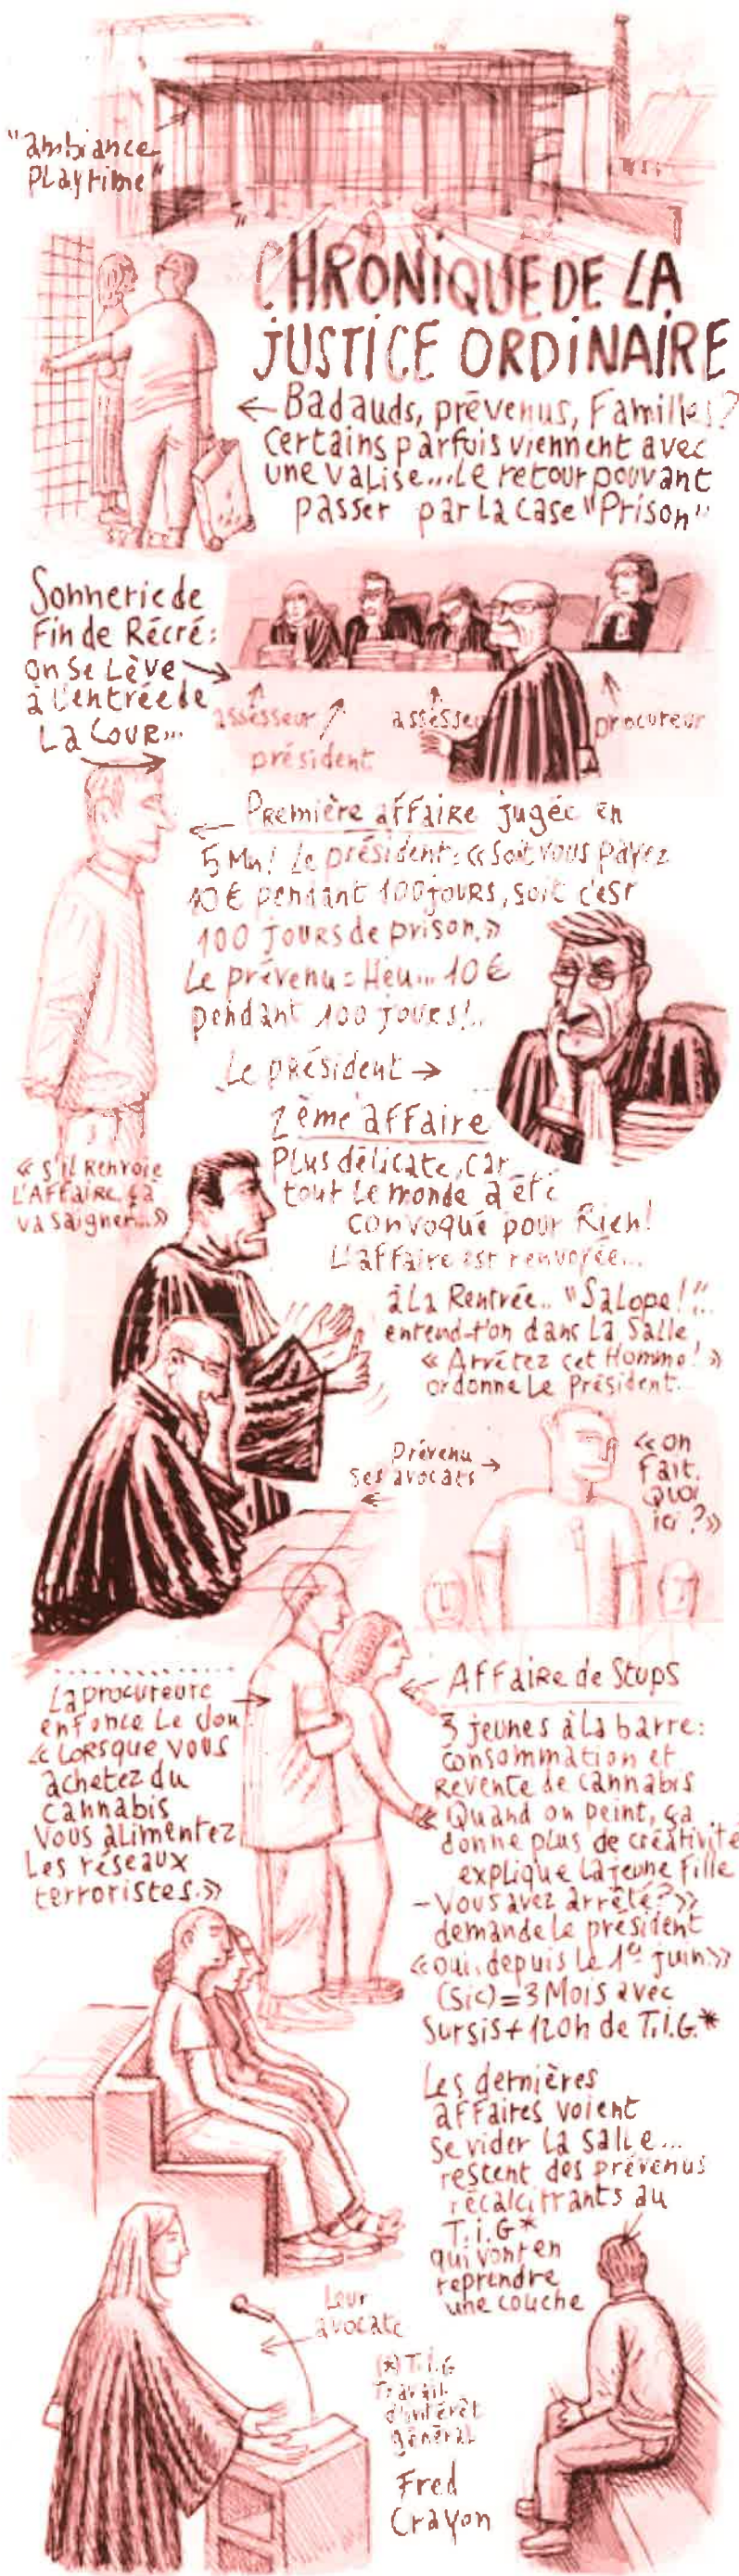 "ambiance
Playtime"
CHRONIQUE DE LA
JUSTICE ORDINAIRE
Badauds, prévenus, Familles?
Certains parfois viennent avec
une valise... Le retour pouvant
passer par la case "Prison"
Sonnerie de
Fin de Récré:
on se Lève
à l'entrée de
La Cour...
assesseur
président
assesseur
procureur
Première affaire jugée en
5 Mn! Le président: «Soit vous payez
10 € pendant 100 jours, soit c'est
100 jours de prison.»
Le prévenu: Heu... 10 €
pendant 100 jours!..
Le président
2ème affaire
Plus délicate, car
tout Le monde a été
convoqué pour Rien!
L'affaire est renvoyée...
«S'il Renvoie
L'AFFaire ça
va Saigner...»
à La Rentrée.. "Salope!"..
entend-t'on dans La Salle
« Arrêtez cet Homme! »
ordonne Le Président.
Prévenu
Ses avocats
«on
Fait
Quoi
ici?»
La procureure
enfonce Le clou
« Lorsque vous
achetez du
cannabis
Vous alimentez
Les réseaux
terroristes.»
Affaire de Stups
3 jeunes à La barre:
consommation et
Revente de cannabis
«Quand on peint, ça
donne plus de créativité
explique La jeune Fille
-Vous avez arrêté?»
demande Le président
«oui, depuis Le 1er juin»
(Sic)=3 Mois avec
Sursis+120h de T.I.G.*
Les dernières
affaires voient
se vider La Salle...
restent des prévenus
récalcitrants au
T.i.G*
qui vont en
reprendre
une couche
Leur
avocate
(*) T.I.G
Travail
d'intérêt
général
Fred
Crayon